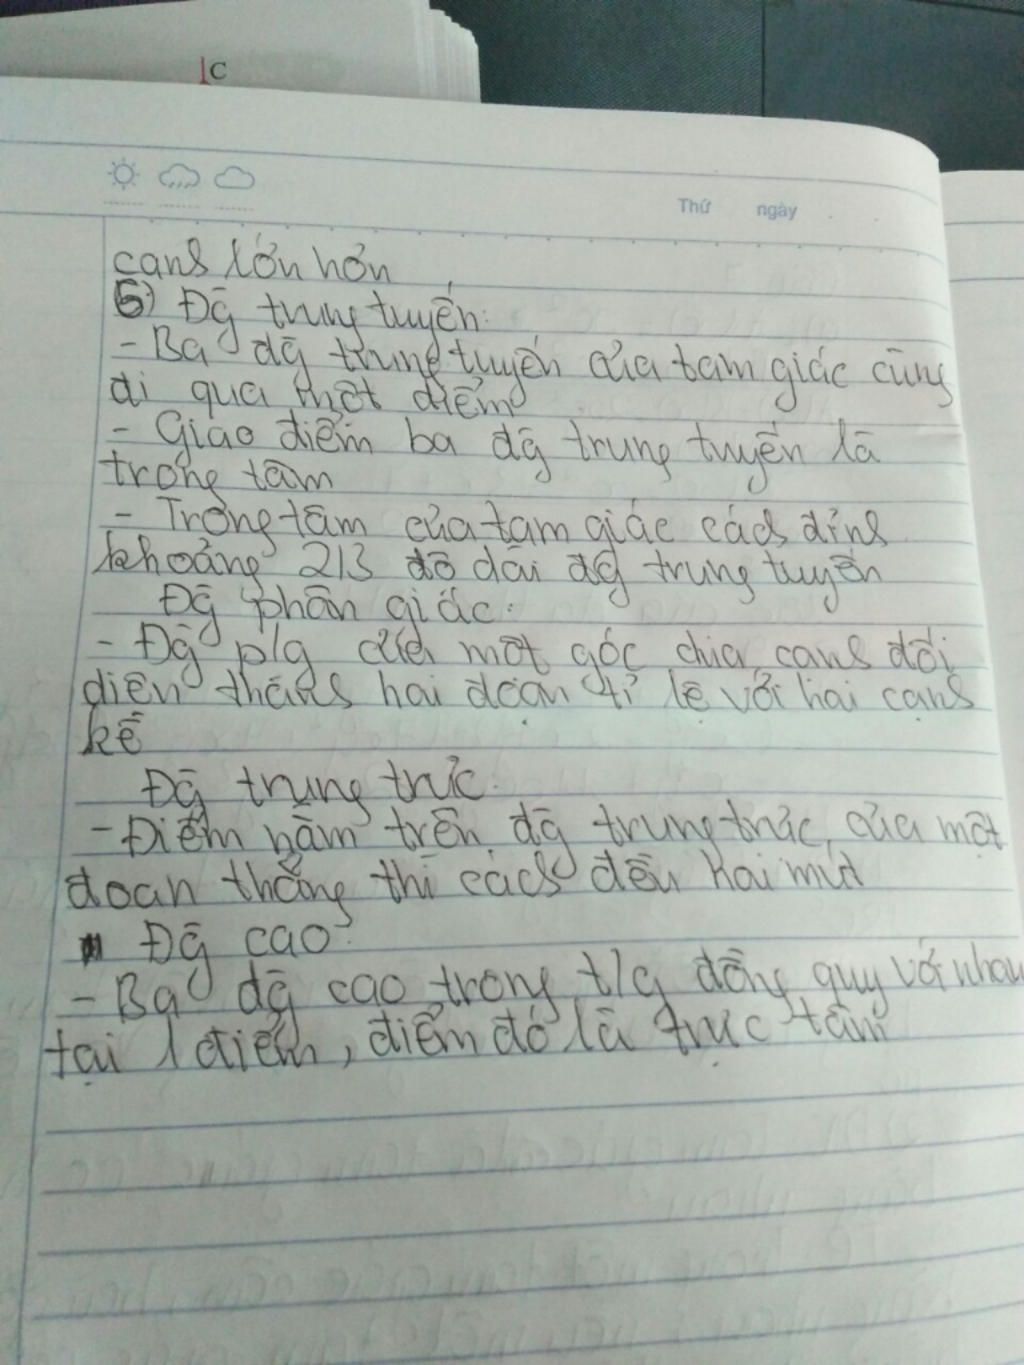 C
Thứ ngày
cạnh lớn hơn
5) Đg trung tuyến:
- Ba đg trung tuyến của tam giác cùng
đi qua một điểm
- Giao điểm ba đg trung tuyến là
trọng tâm
- Trọng tâm của tam giác cách đỉnh
khoảng 2/3 độ dài đg trung tuyến
Đg phân giác:
- Đg p/g của một góc chia cạnh đối
diện thành hai đoạn tỉ lệ với hai cạnh
kề
Đg trung trực:
- Điểm nằm trên đg trung trực của một
đoạn thẳng thì cách đều hai mút
Đg cao:
- Ba đg cao trong t/g đồng quy với nhau
tại 1 điểm, điểm đó là trực tâm